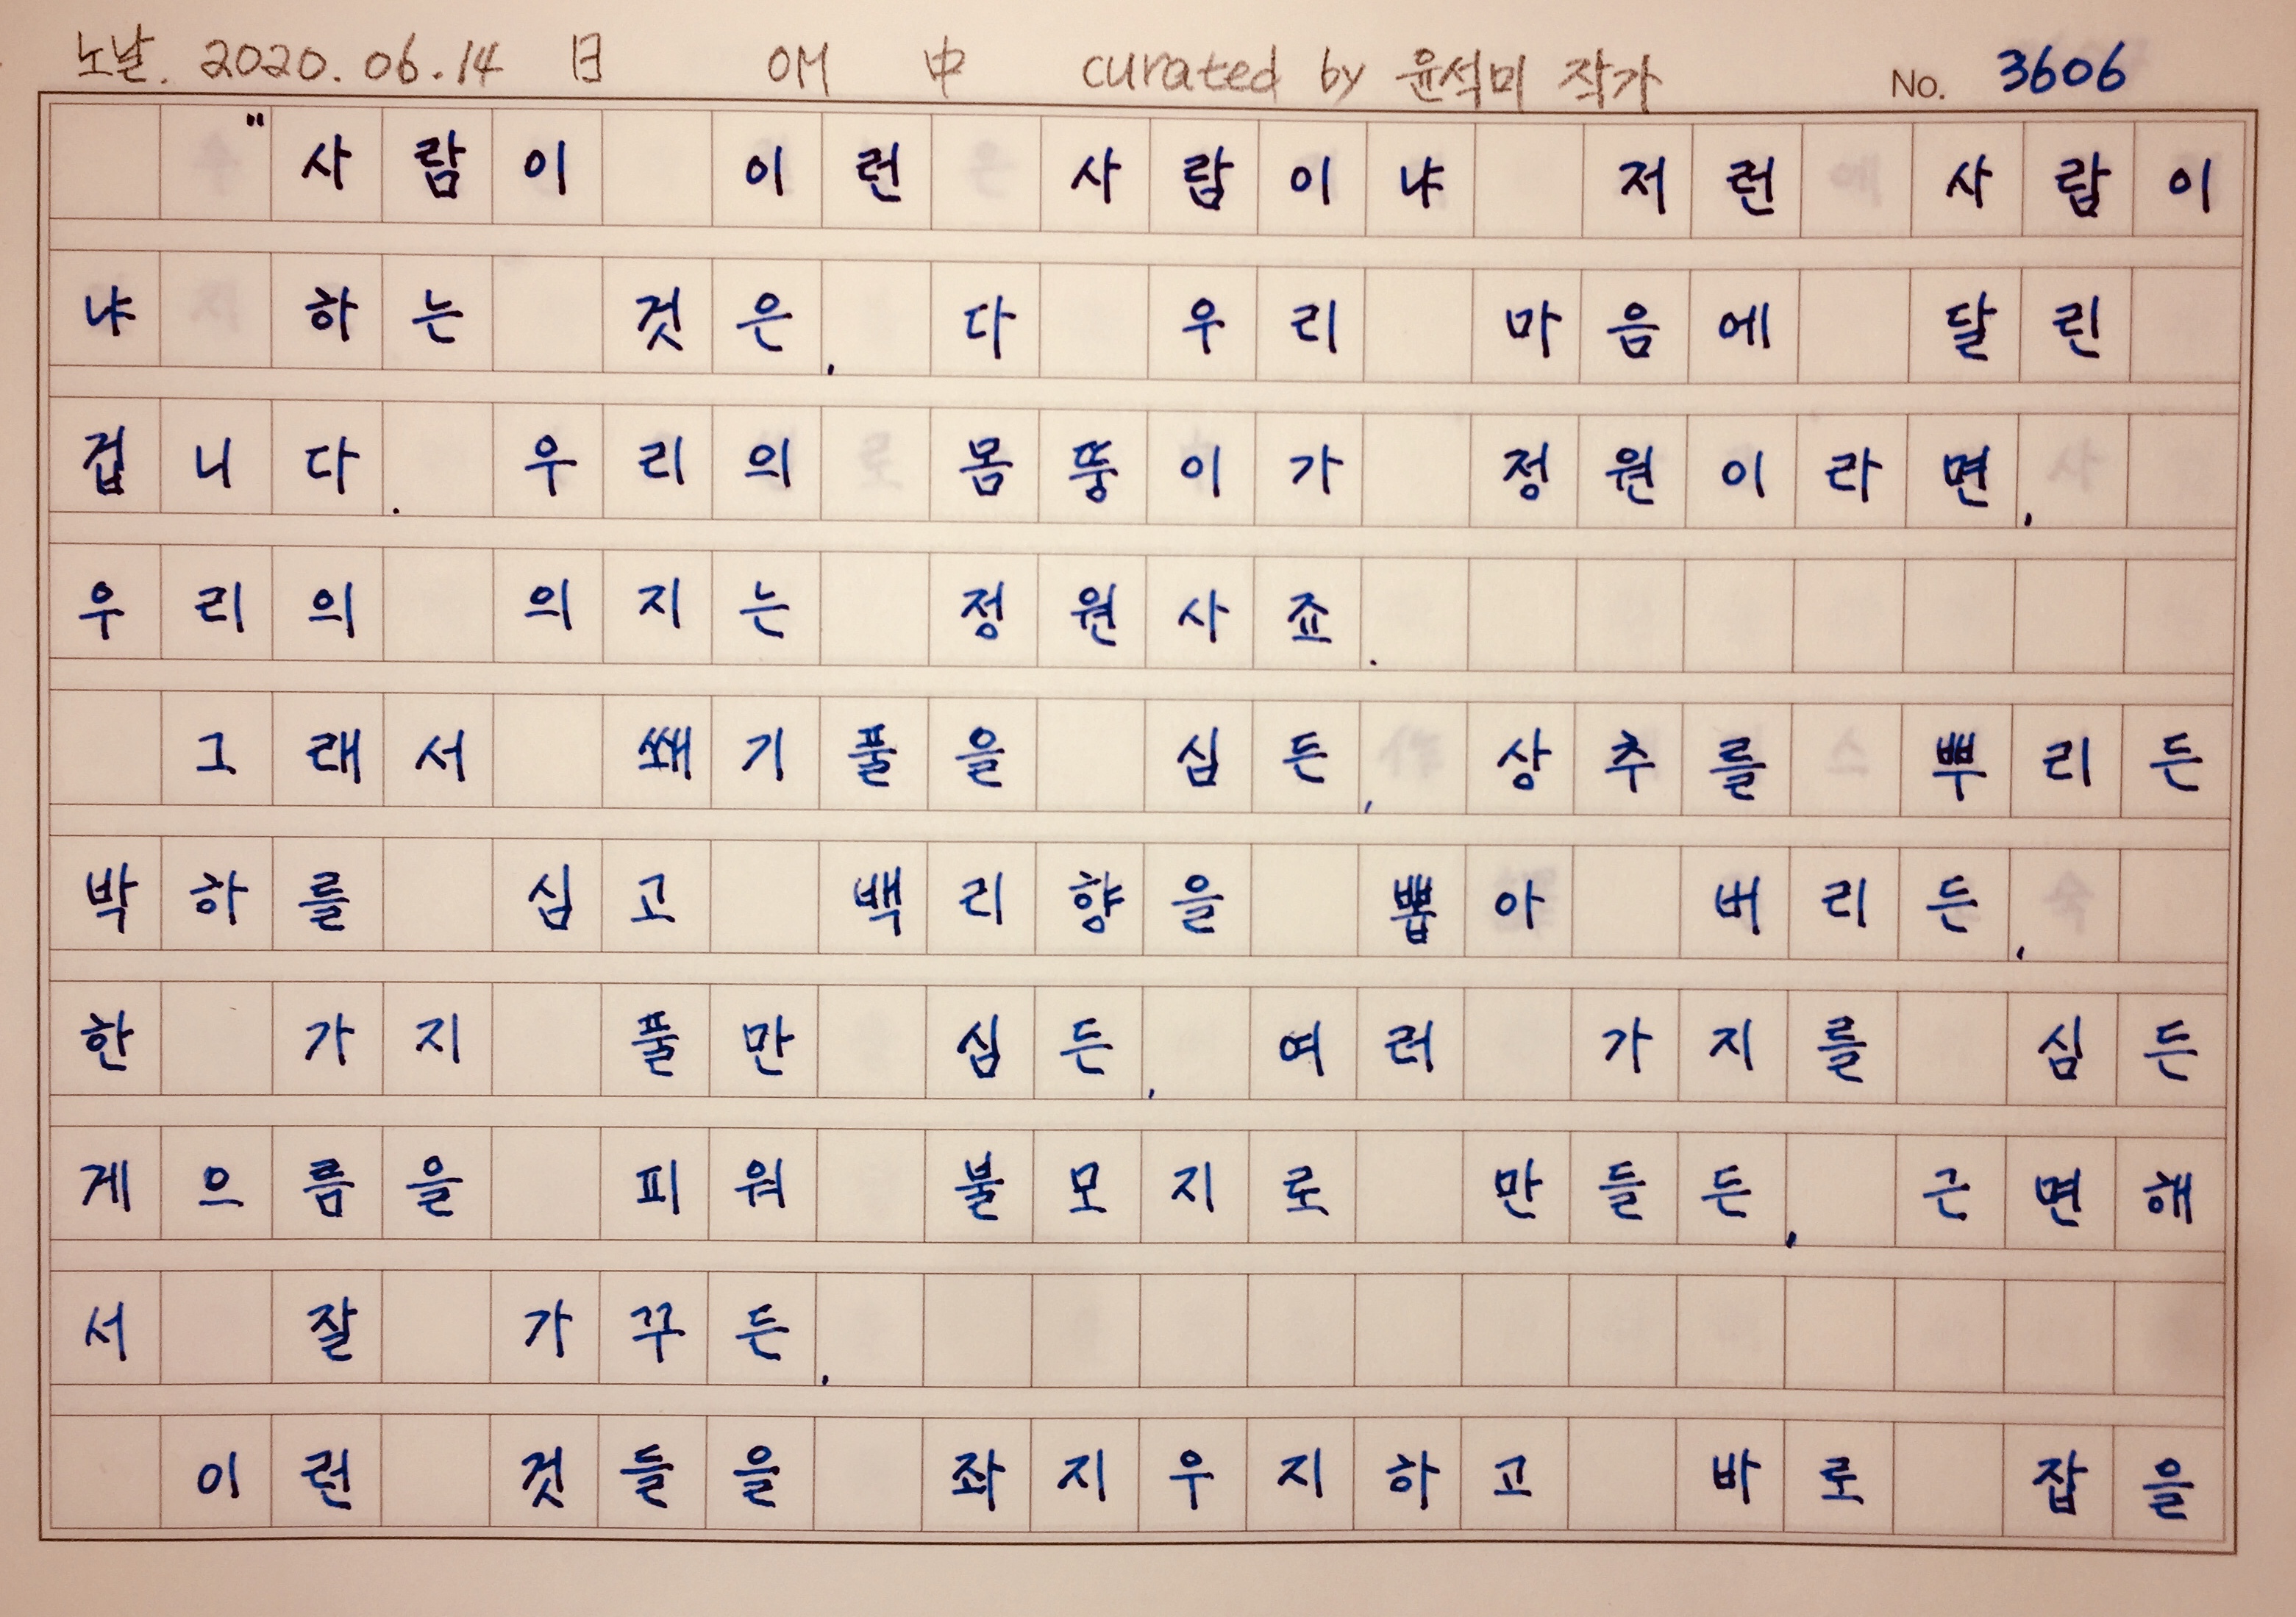 노날. 2020.06.14 日 OM 中 curated by 윤석미 작가 No. 3606
"사람이 이런 사람이냐 저런 사람이
냐 하는 것은, 다 우리 마음에 달린
겁니다. 우리의 몸뚱이가 정원이라면,
우리의 의지는 정원사죠.
그래서 쐐기풀을 심든, 상추를 뿌리든
박하를 심고 백리향을 뽑아 버리든,
한 가지 풀만 심든, 여러 가지를 심든
게으름을 피워 불모지로 만들든, 근면해
서 잘 가꾸든,
이런 것들을 좌지우지하고 바로 잡을